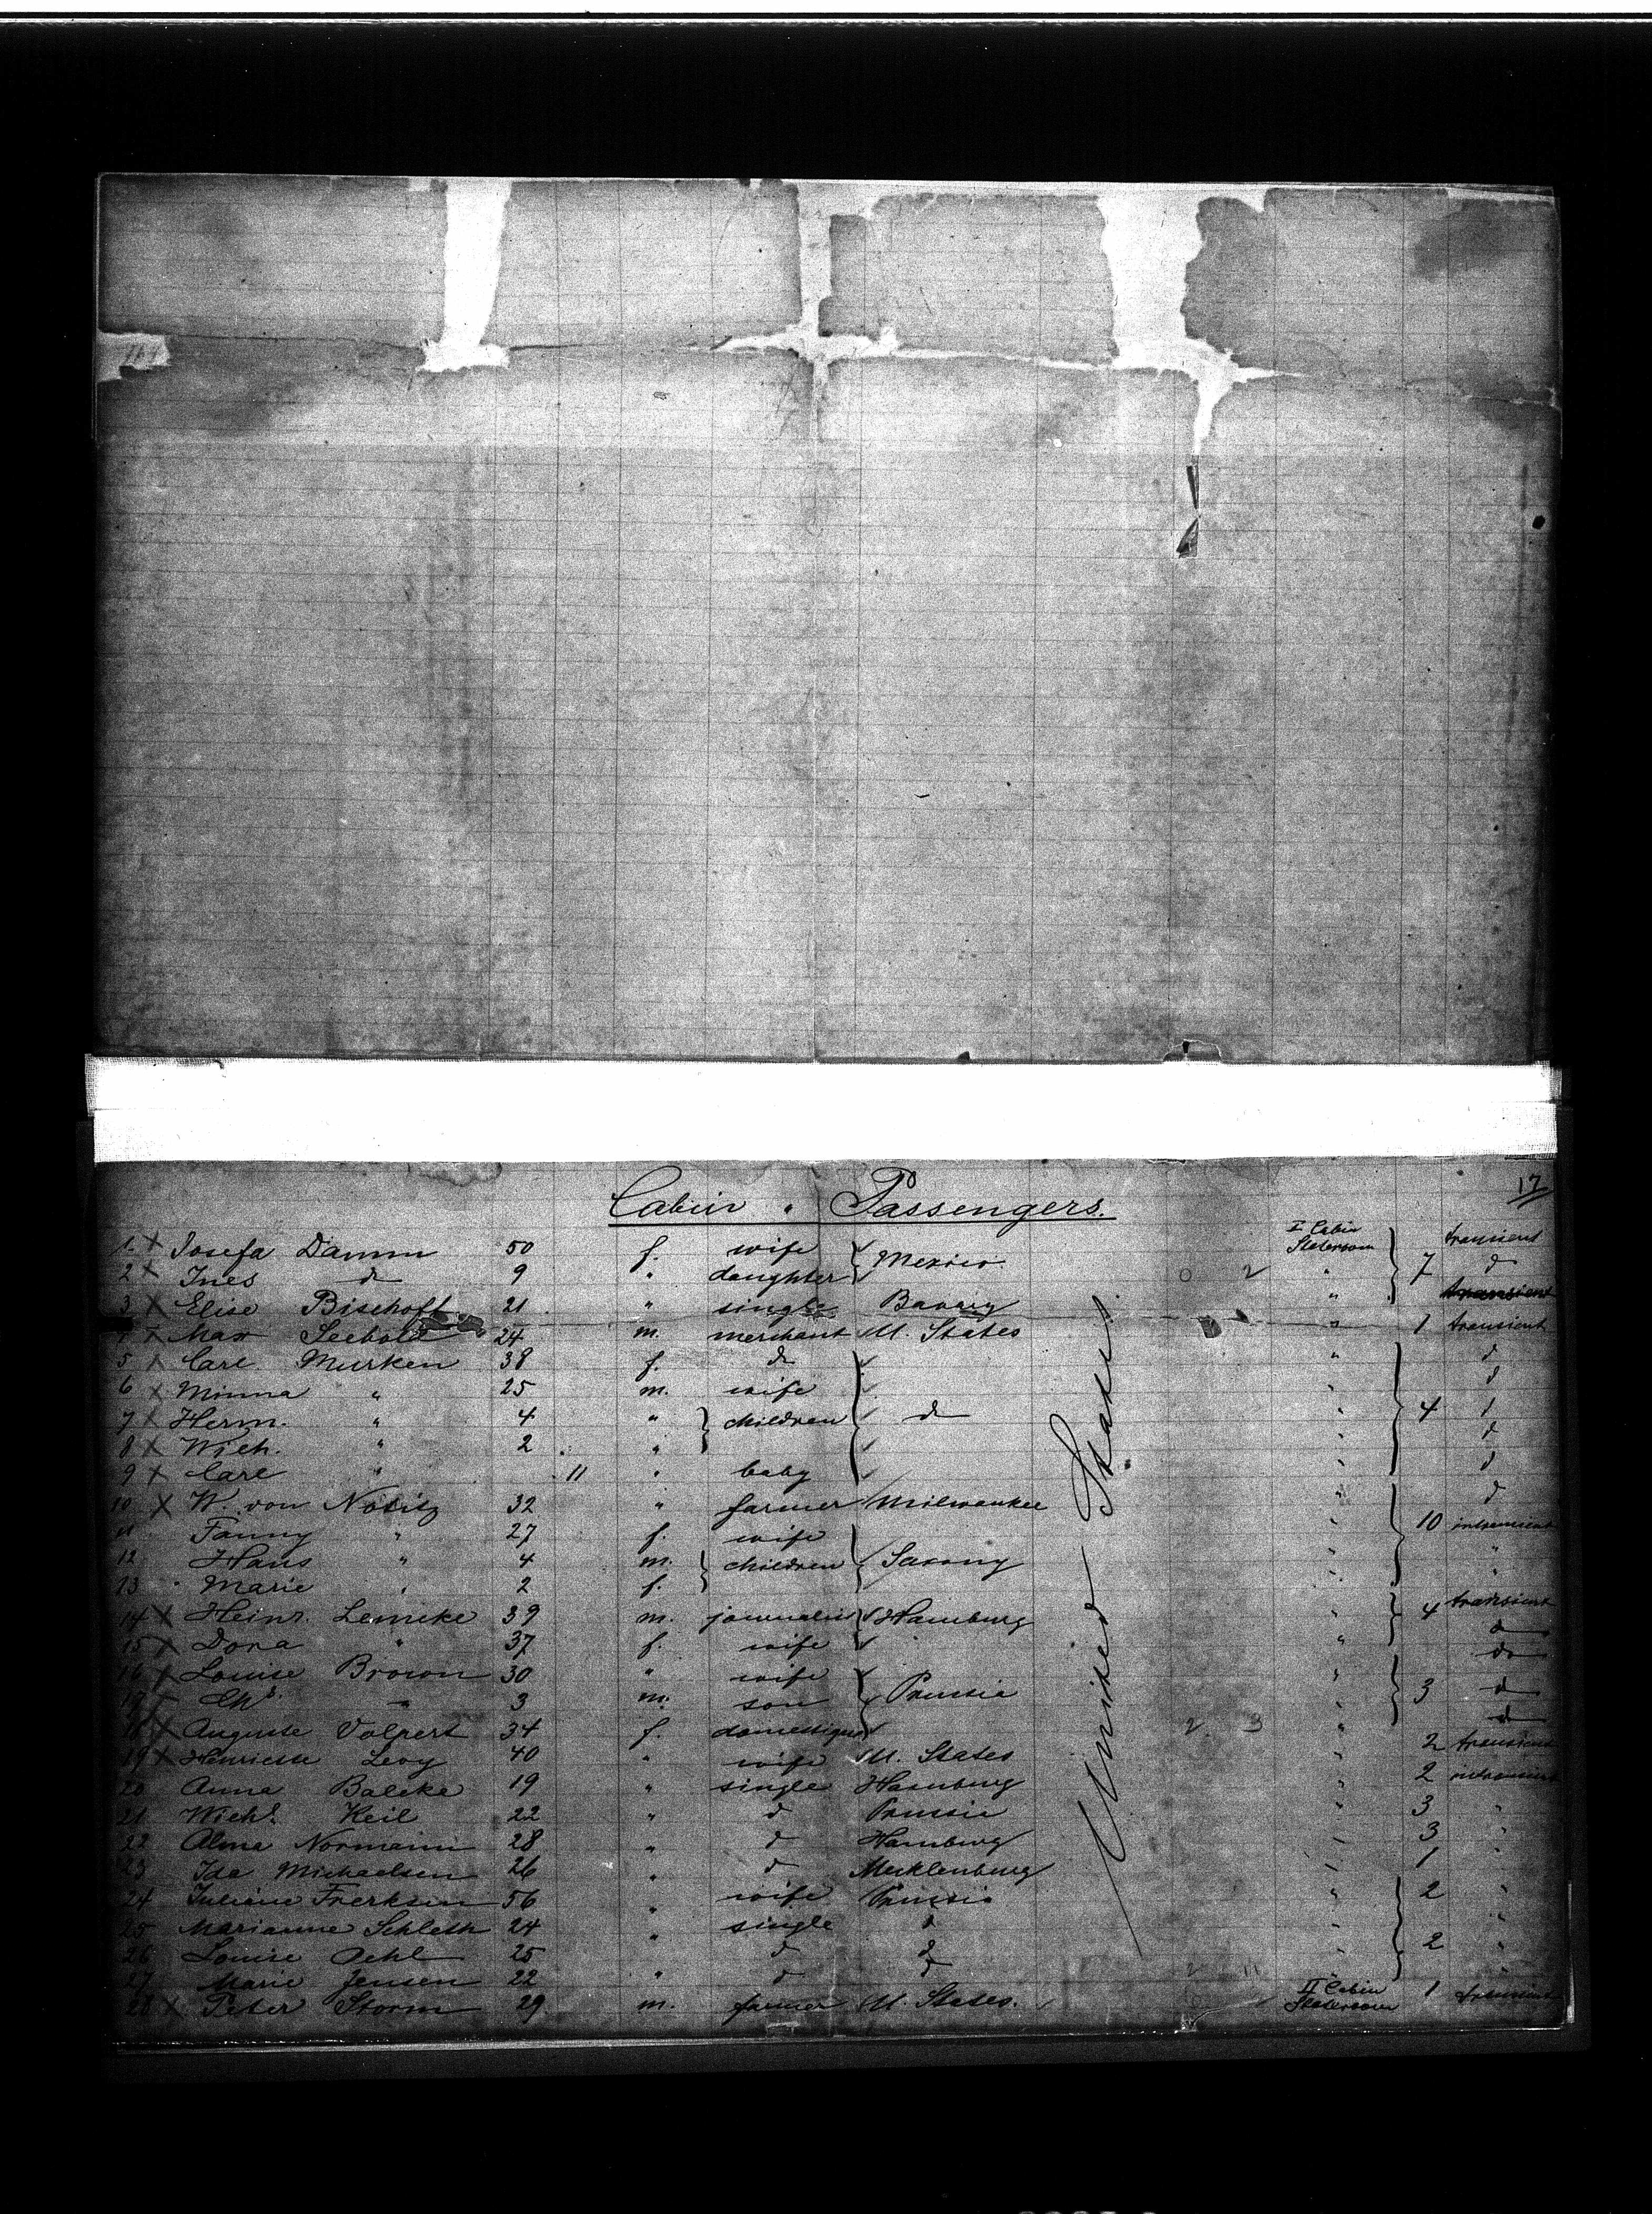 17
Cabin " Passengers.
1. x Josefa Damm 50 f. wife Mexico I Cabin Stateroom transient
2 x Ines d 9 " daughter " 7 d
3 x Elise Bischoff 21 " single Bavary "
4 x Max Seebold 24 m. merchant U. States " 1 transient
5 x Carl Murken 38 f. d " d
6 x Minna " 25 m. wife " d
7 x Herm. " 4 " children d " 4
8 x Wilh. " 2 " " d
9 x Carl " 11 " baby " d
10 x W. von Nostiz 32 " farmer Milwaukee " d
11 Fanny " 27 f. wife " 10 intransient
12 Hans " 4 m. children Saxony " "
13 Marie " 2 f. "
14 x Heinr. Lemcke 39 m. journalist Hamburg " 4 transient
15 x Dora " 37 f. wife " d
16 x Louise Brown 30 " wife " do
17 " 3 m. son Prussia " 3 d
18 x Auguste Volpert 34 f. domestique " d
19 x Henriette Levy 40 " wife U. States " 2 transient
20 Anna Balcke 19 " single Hamburg " 2 intransient
21 Keil 22 " d Prussia " 3 "
22 Alma Normann 28 " d Hamburg " 3 "
23 Ida Michaelsen 26 " d Mecklenburg " 1 "
24 Juliane Frerksen 56 " wife Prussia " 2 "
25 Marianne Schleth 24 " single d " "
26 Louise Oehl 25 " d d " 2 "
27 Marie Jensen 22 " d d "
28 x Peter Storm 29. m. farmer U. States. II Cabin Stateroom 1 transient
United States.